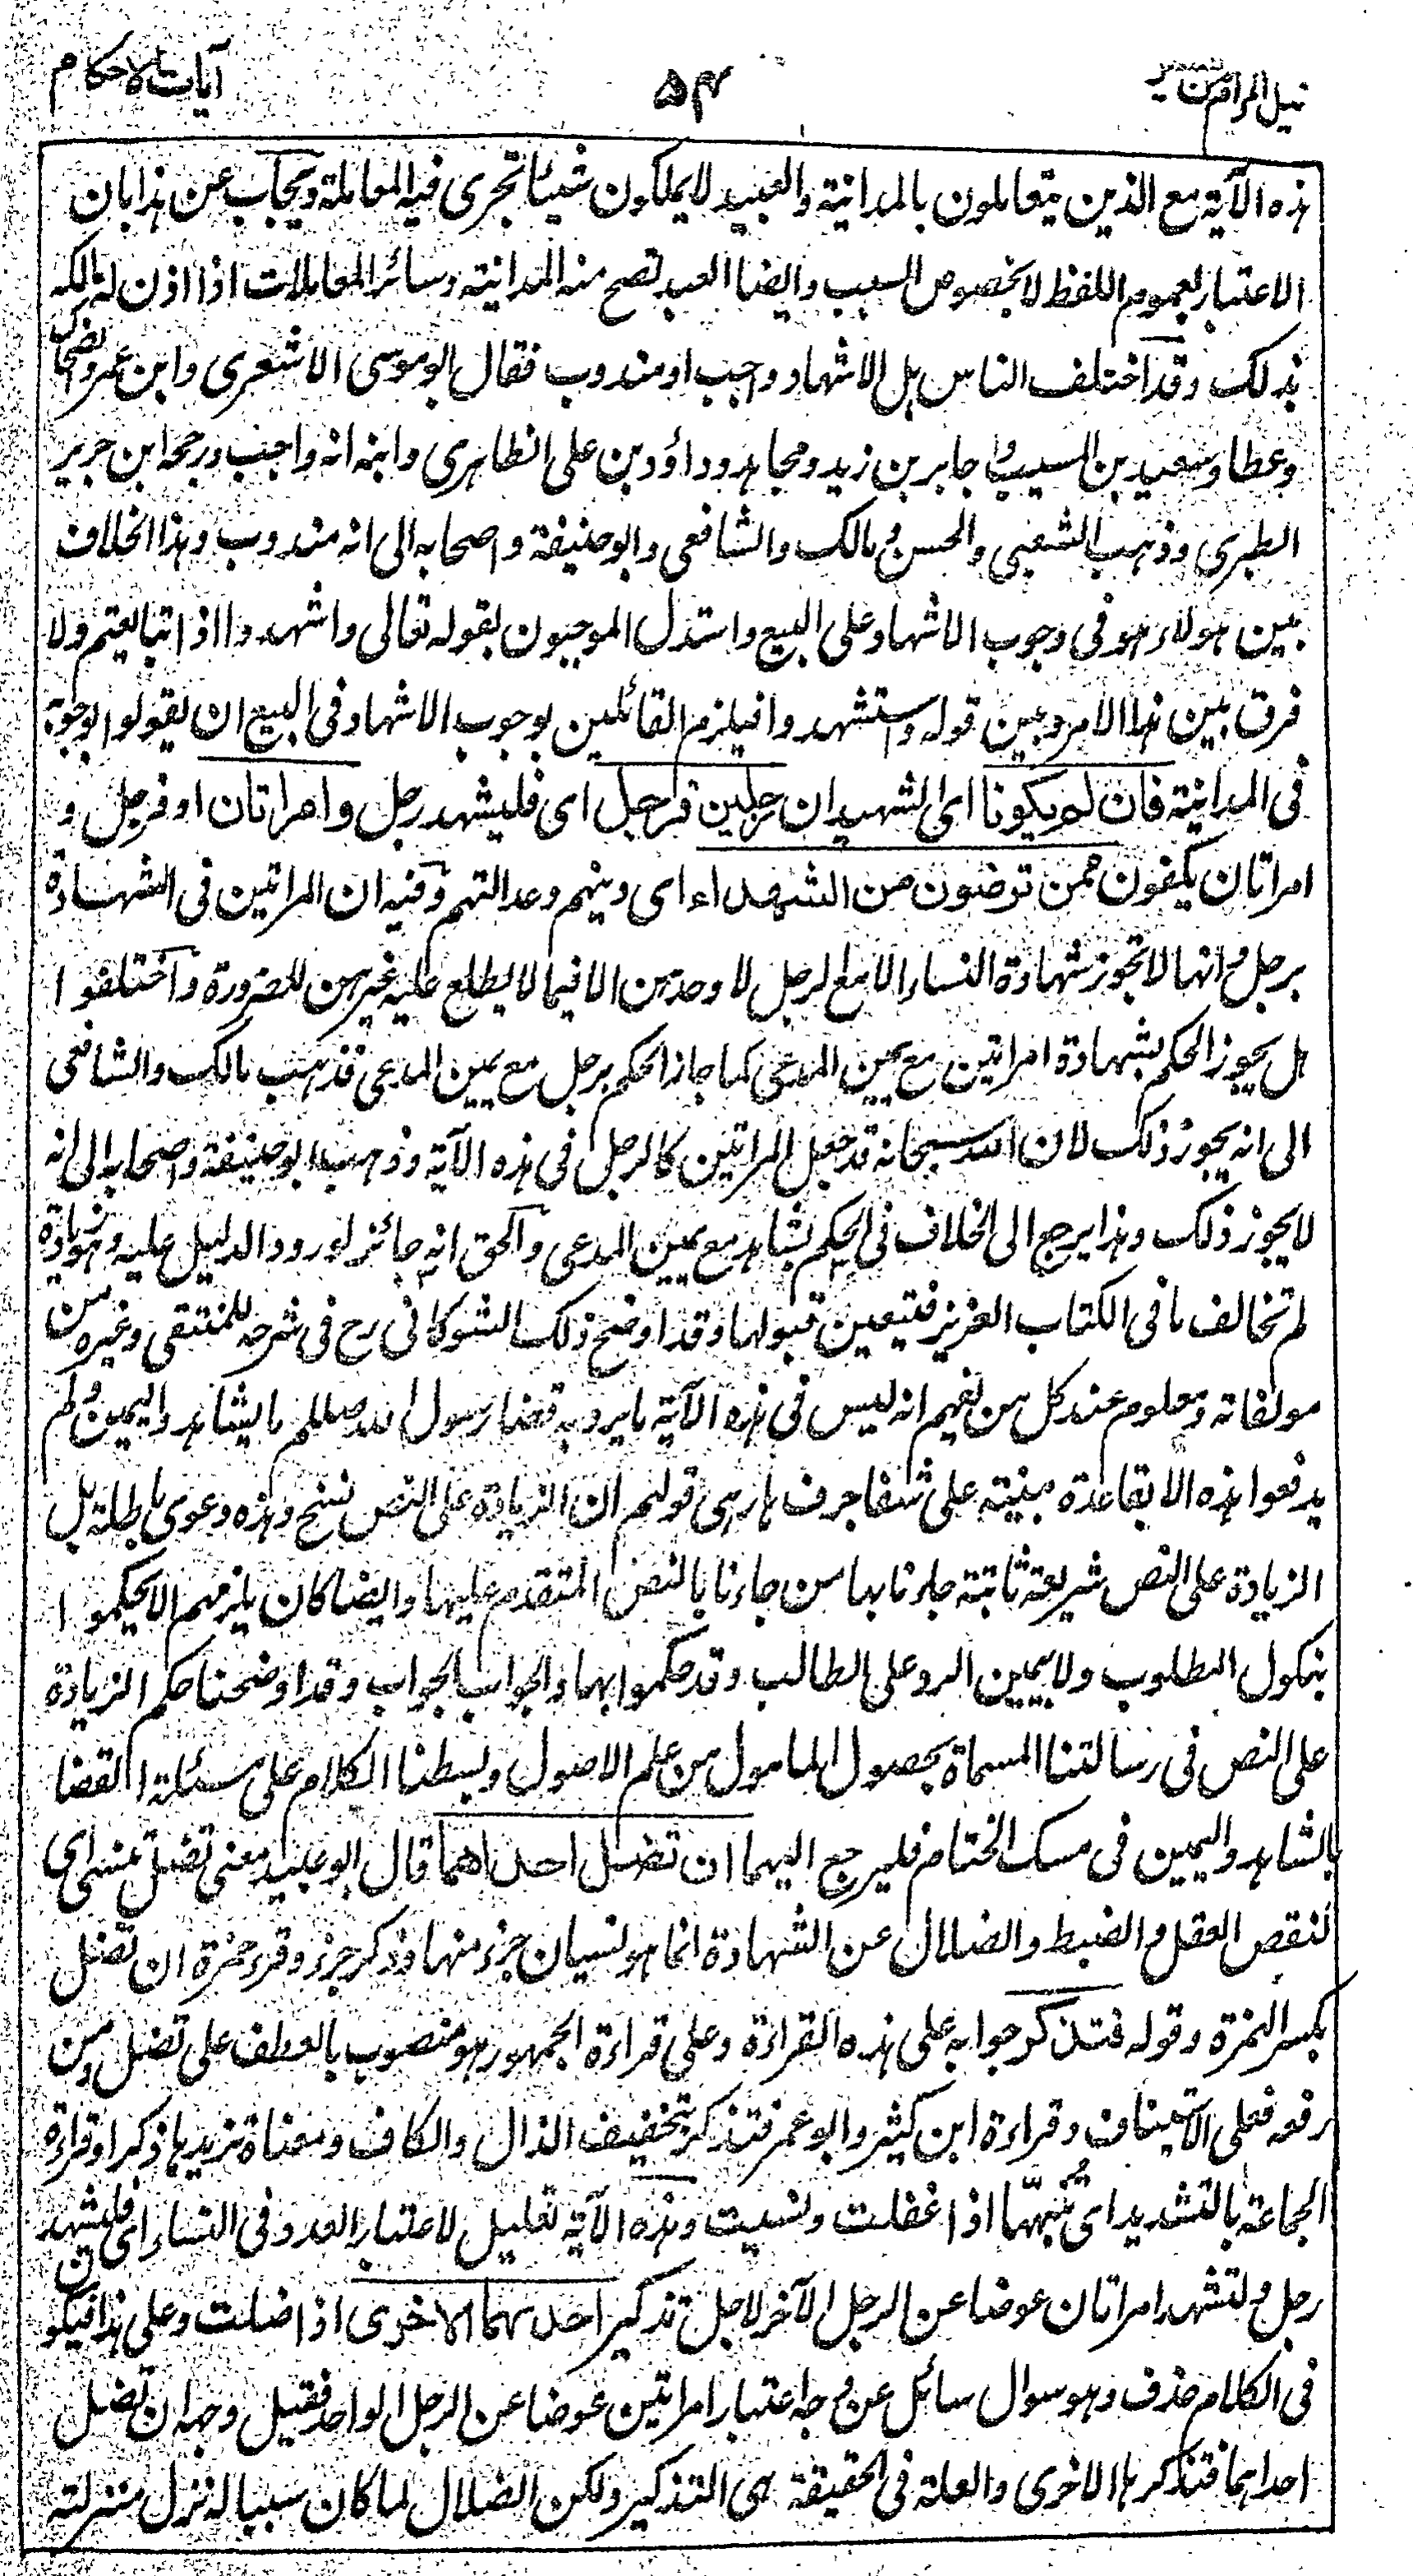 نيل المرام من تفسير
۵۴
آيات الاحكام
هذه الآية مع الذين يتعاملون بالمداينة والعبيد لا يملكون شيئا تجرى فيه المعاملة ويجاب عن هذا بان
الاعتبار بعموم اللفظ لا بخصوص السبب وايضا العبد تصح منه المداينة وسائر المعاملات اذا اذن له مالكه
بذلك وقد اختلف الناس هل الاشهاد واجب او مندوب فقال ابو موسى الاشعرى وابن عمر والضحاك
وعطا وسعيد بن المسيب وجابر بن زيد ومجاهد وداؤد بن على الظاهرى وابنه انه واجب ورجحه ابن جرير
الطبرى وذهب الشعبى والحسن ومالك والشافعى وابو حنيفة واصحابه الى انه مندوب وهذا الخلاف
بين هولاء هو فى وجوب الاشهاد على البيع واستدل الموجبون بقوله تعالى واشهدوا اذا تبايعتم ولا
فرق بين هذا الامر وبين قوله واستشهدوا فيلزم القائلين بوجوب الاشهاد فى البيع ان يقولوا بوجوبه
فى المداينة فان لم يكونا اى الشهيدان رجلين فرجل اى فليشهد رجل وامراتان او فرجل و
امراتان يكفون ممن ترضون من الشهداء اى دينهم وعدالتهم وفيه ان المراتين فى الشهادة
برجل وانها لا تجوز شهادة النساء الا مع الرجل لا وحدهن الا فيما لا يطلع عليه غيرهن للضرورة واختلفوا
هل يجوز الحكم بشهادة امراتين مع يمين المدعى كما جاز الحكم برجل مع يمين المدعى فذهب مالك والشافعى
الى انه يجوز ذلك لان الله سبحانه قد جعل المراتين كالرجل فى هذه الآية وذهب ابو حنيفة واصحابه الى انه
لا يجوز ذلك وهذا يرجع الى الخلاف فى الحكم بشاهد مع يمين المدعى والحق انه جائز لورود الدليل عليه وهو زيادة
لم تخالف ما فى الكتاب العزيز فتيعين قبولها وقد اوضح ذلك الشوكانى رح فى شرحه للمنتقى وغيره من
مولفاته ومعلوم عند كل من يفهم انه ليس فى هذه الآية ما يرد به قضاء رسول الله صللم بالشاهد واليمين ولم
يدفعوا هذه الا بقاعدة مبنية على شفا جرف هار هى قولهم ان الزيادة على النص نسخ وهذه دعوى باطلة بل
الزيادة على النص شريعة ثابتة جاءنا بها من جاءنا بالنص المتقدم عليها وايضا كان يلزمهم الا يحكموا
بنكول المطلوب ولا بيمين الرد على الطالب وقد حكموا بهما والجواب الجواب وقد اوضحنا حكم الزيادة
على النص فى رسالتنا المسماة بحصول المامول من علم الاصول وبسطنا الكلام على مسئلة القضا
بالشاهد واليمين فى مسك الختام فليرجع اليهما ان تضل احداهما قال ابو عبيد معنى تضل تنسى اى
لنقص العقل والضبط والضلال عن الشهادة انما هو نسيان جزء منها وذكر جزء وقرء حمزة ان تضل
بكسر الهمزة وقوله فتذكر جوابه على هذه القراءة وعلى قراءة الجمهور هو منصوب بالعطف على تضل ومن
رفعه فعلى الاستيناف وقراءة ابن كثير وابو عمر فتذكر بتخفيف الذال والكاف ومعناه تزيدها ذكرا وقراءة
الجماعة بالتشديد اى تُنبهّها اذا غفلت ونسيت وهذه الآية تعليل لاعتبار العدد فى النساء اى فليشهد
رجل ولتشهد امراتان عوضا عن الرجل الآخر لاجل تذكير احدىهما الاخرى اذا ضلت وعلى هذا فيكون
فى الكلام حذف وهو سوال سائل عن وجه اعتبار امراتين عوضا عن الرجل الواحد فقيل وجهه ان تضل
احداهما فتذكرها الاخرى والعلة فى الحقيقة هى التذكير ولكن الضلال لما كان سببا له نزل منزلته